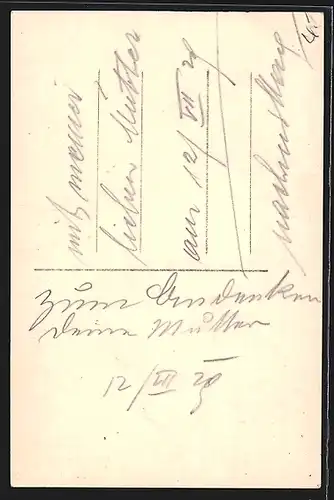 mit meiner
lieben Mutter
am 12/VII 29
nachmittag
zum Andenken
deine Mutter
12/VII 29